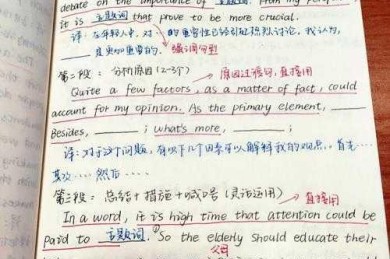 debate on the importance of 主题词. From my perspe
it is 主题词 that prove to be more crucial.
译: 在年轻人中, 对 的重要性已经引起热烈讨论, 我认为,
是更加重要的. 强调句型
第二段: 分析原因(2-3个) 原因过渡句, 直接用
Quite a few factors, as a matter of fact, could
account for my opinion. As the primary element, ;
Besides, ; what's more, ;
译: 对于这个问题, 有以下几个因素可以解释我的观点. 首先...
其次... 然后...
第三段: 总结+措施+喊口号(灵活运用) 直接用
In a word, it is high time that attention could be
paid to 主题词. So the elderly should educate their
父母